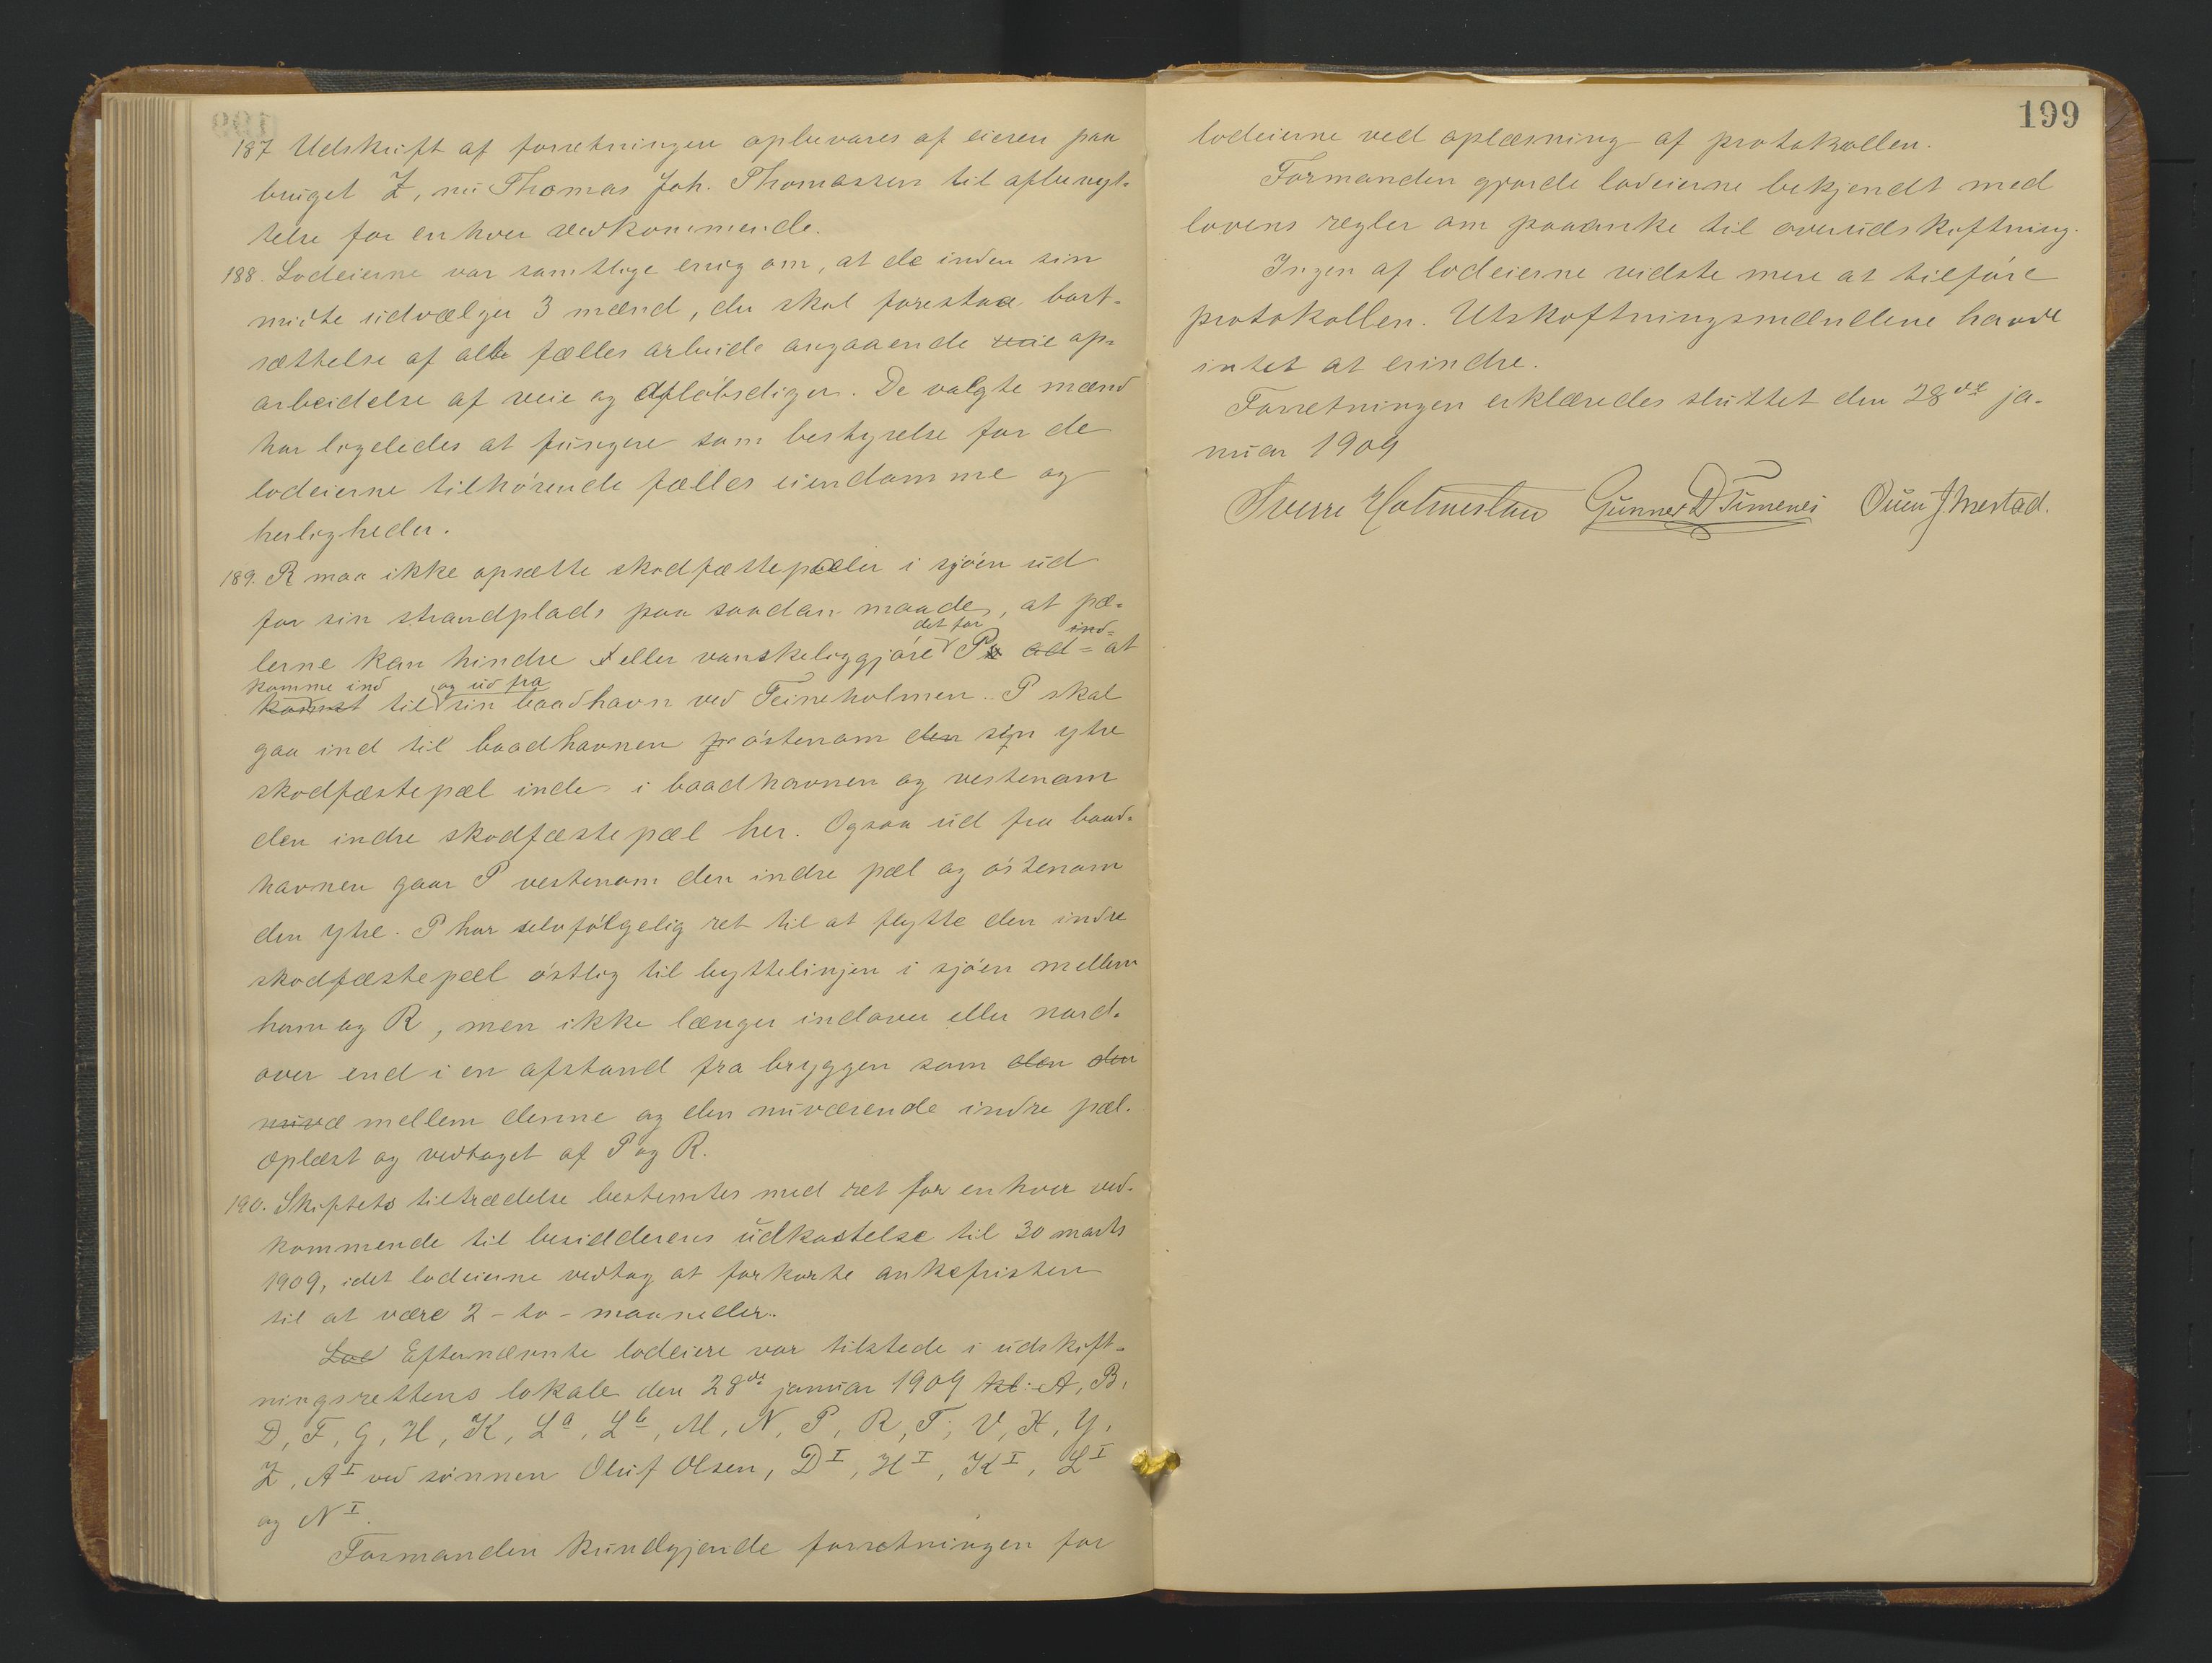 187 Udskrift af forretningen opbevares af eieren paa
bruget Z, nu Thomas Joh. Thomassen til afbenyt-
telse for enhver vedkommende.
188. Lodeierne var samtlige enig om, at de inden sin
midte udvælger 3 mænd, der skal forestaa bort-
sættelse af alt fælles arbeide angaaende veie op-
arbeidelse af veie og afløbsdiger. De valgte mænd
har ligeledes at fungere som bestyrelse for de
lodeierne tilhørende fælles eiendomme og
herligheder.
189. R maa ikke opsætte skodfæstepæler i sjøen ud
for sin strandplads paa saadan maade, at pæ-
det for ind-
lerne kan hindre eller vanskeliggjøre P ad- at
komme ind og ud fra
komst til sin baadhavn ved Teineholmen. P skal
gaa ind til baadhavnen østenom den sin ytre
skodfæstepæl inde i baadhavnen og vestenom
den indre skodfæstepæl her. Ogsaa ud fra baad-
havnen gaar P vestenom den indre pæl og østenom
den ytre. P har selvfølgelig ret til at flytte den indre
skodfæstepæl østlig til byttelinjen i sjøen mellem
ham og R, men ikke længer indover eller nord-
over end i en afstand fra bryggen som den den
nuvæ mellem denne og den nuværende indre pæl.
Oplæst og vedtaget af P og R.
190. Skiftets tiltrædelse bestemtes med ret for enhver ved-
kommende til besidderens udkastelse til 30 marts
1909, idet lodeierne vedtog at forkorte ankefristen
til at være 2 - to - maaneder.
Lod Efternævnte lodeiere var tilstede i udskift-
ningsrettens lokale den 28de januar 1909 kl: A, B,
D, F, G, H, K, La, Lb, M, N, P, R, T, V, X, Y,
Z, AI ved sønnen Oluf Olsen, DI, HI, KI, LI
og NI.
Formanden kundgjorde forretningen for
199
lodeierne ved oplæsning af protokollen.
Formanden gjorde lodeierne bekjendt med
lovens regler om paaanke til overudskiftning.
Ingen af lodeierne vidste mere at tilføre
protokollen. Utskiftningsmændene havde
intet at erindre.
Forretningen erklæredes sluttet den 28de ja-
nuar 1909
Sverre Gunner D Timenes J Mestad.